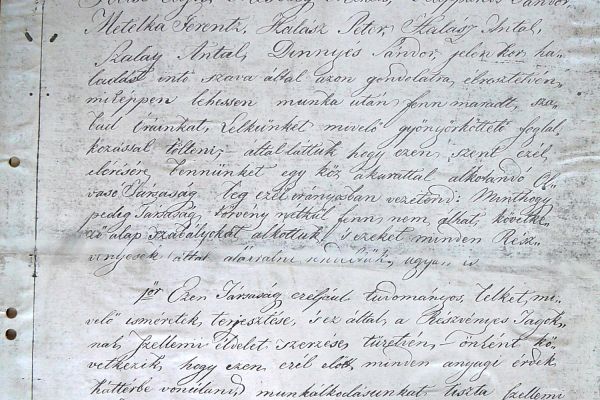 Metelka Ferentz, Kalász Péter, Kalász Antal,
Szalay Antal, Dinnyés Sándor, jelen kor ha-
ladást intő szava által azon gondolatra élresztetvén,
miképpen lehessen munka után fenn maradt, sza-
bad óráinkat, Lelkünket mivelő gyönyörködtető foglal-
kozással tölteni; – által láttuk hogy ezen szent czél
elérésére, bennünket egy köz akarattal alkotandó Ol-
vasó Társaság leg czél irányosban vezetend: Minthogy
pedig Társaság, törvény nélkül fenn nem álhat, követke-
ző alap szabályokat alkottuk, s ezeket minden Rész-
vényesek által aláiratni rendeltük, ugyan is
1ör Ezen Társaság, czéljául tudományos, Lelket mi-
velő isméretek terjesztése, s ez által, a Részvényes Tagok-
nak Szellemi élvelet szerezése tüzetvén, – önként kö-
vetkezik, hogy ezen czél előtt, minden anyagi érdek
háttérbe vonúland munkálkodásunkat tiszta Szellemi